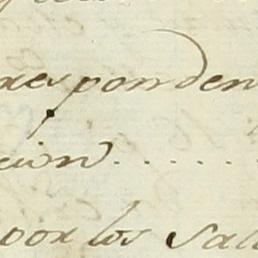 responden
cion........
por los Sala